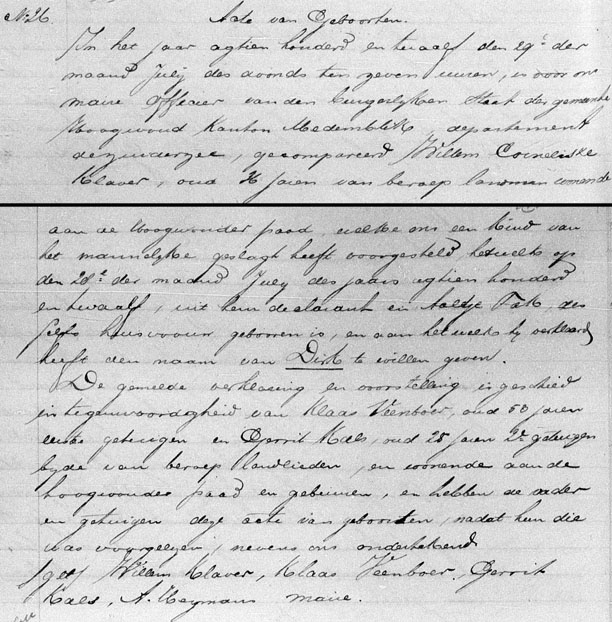 No 26. Acte van Geboorten.
In het jaar agtien honderd en twaalf den 29e der
maand July des avonds ten zeven uuren, is voor ons
maire officier van den burgerlyken staat der gemeente
Hoogwoud Kanton Medemblik, departement
der zuiderzee, gecompareerd Willem Cornelisse
Klaver, oud 26 jaren van beroep landman wonende
aan de Hoogwouder paad, welke ons een kind van
het mannelyke geslagt heeft voorgesteld, hetwelk op
den 28e der maand July des jaars agtien honderd
en twaalf, uit hem declarant en Aaltje Tak, des
selfs huisvrouw gebooren is, en aan hetwelk hy verklaard
heeft den naam van Dirk te willen geven
De gemelde verklaring en voorstelling is geschied
in tegenwoordigheid van Klaas Veenboer, oud 50 jaren
eerste getuigen en Gerrit Kals, oud 25 jaren 2e getuigen
byde van beroep landlieden, en wonende aan de
hoogwouder paad en gebuuren, en hebben de vader
en getuigen deze acte van geboorten, nadat hun die
was voorgelezen, nevens ons onderteekend
(get) Willem Klaver, Klaas Veenboer, Gerrit
Kals, A. Heymans maire.